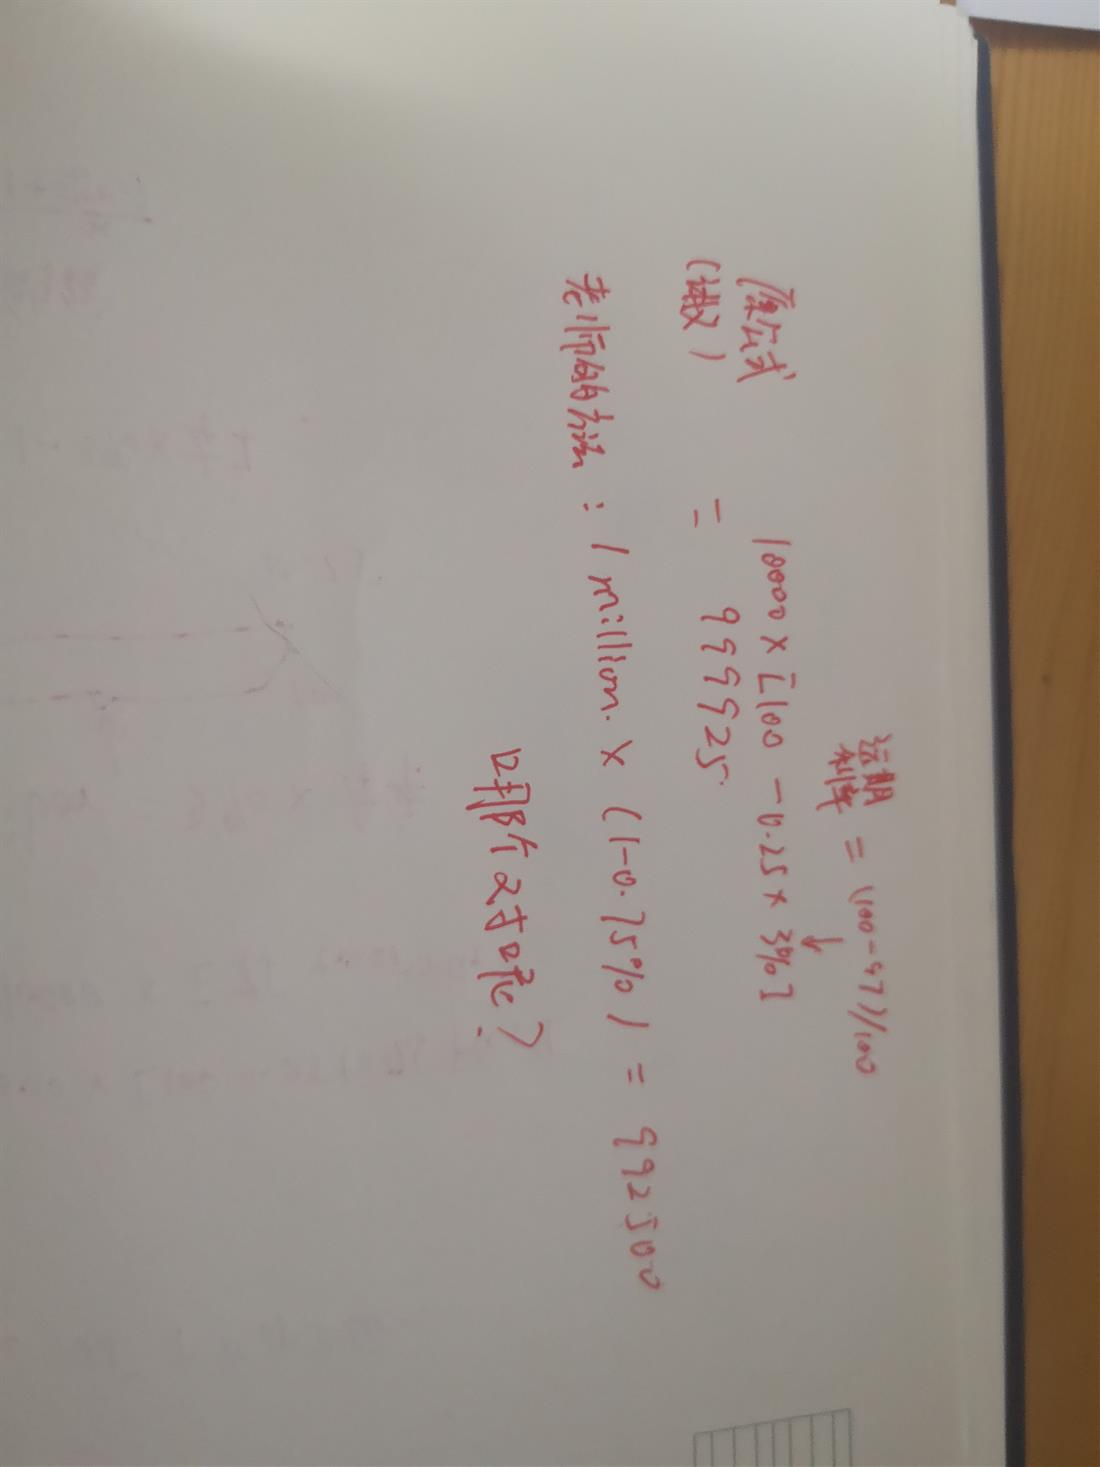 远期利率 = (100-97)/100
原公式 10000 × [100 - 0.25 × 3%]
(讲义) = 999925.
老师的方法: 1 million. × (1-0.75%) = 992500
哪个对呢?